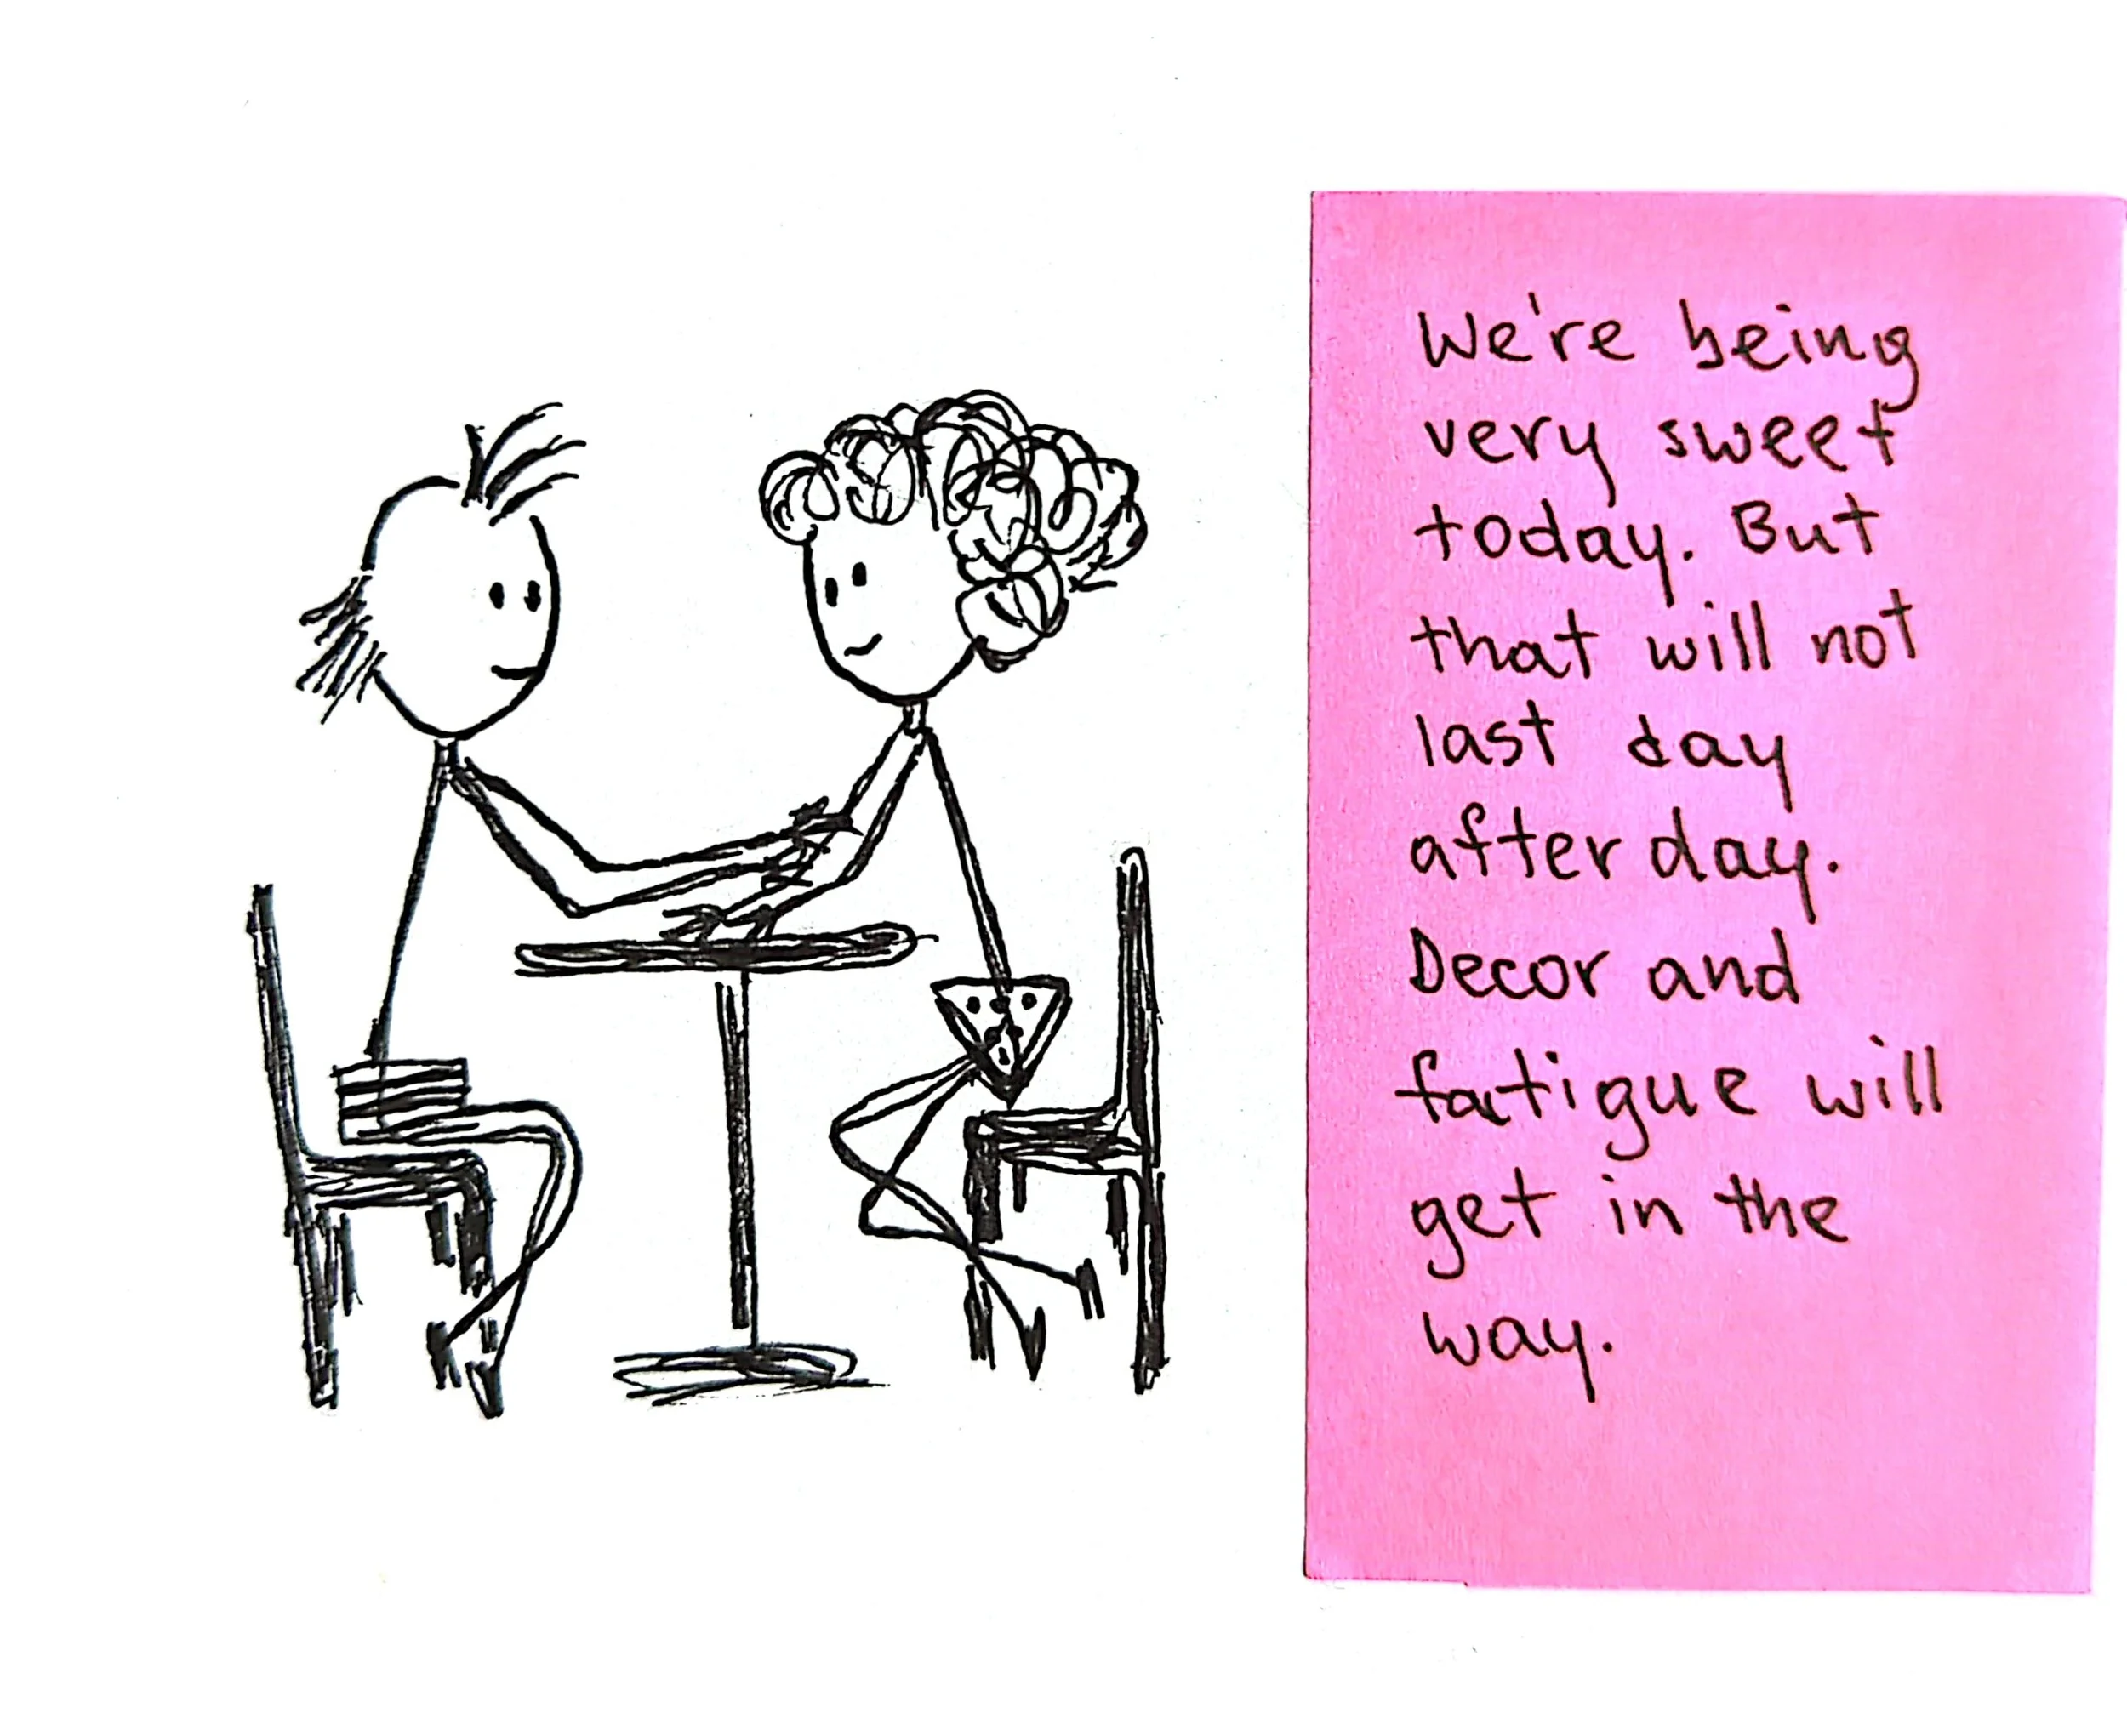 We're being
very sweet
today. But
that will not
last day
after day.
Decor and
fatigue will
get in the
way.